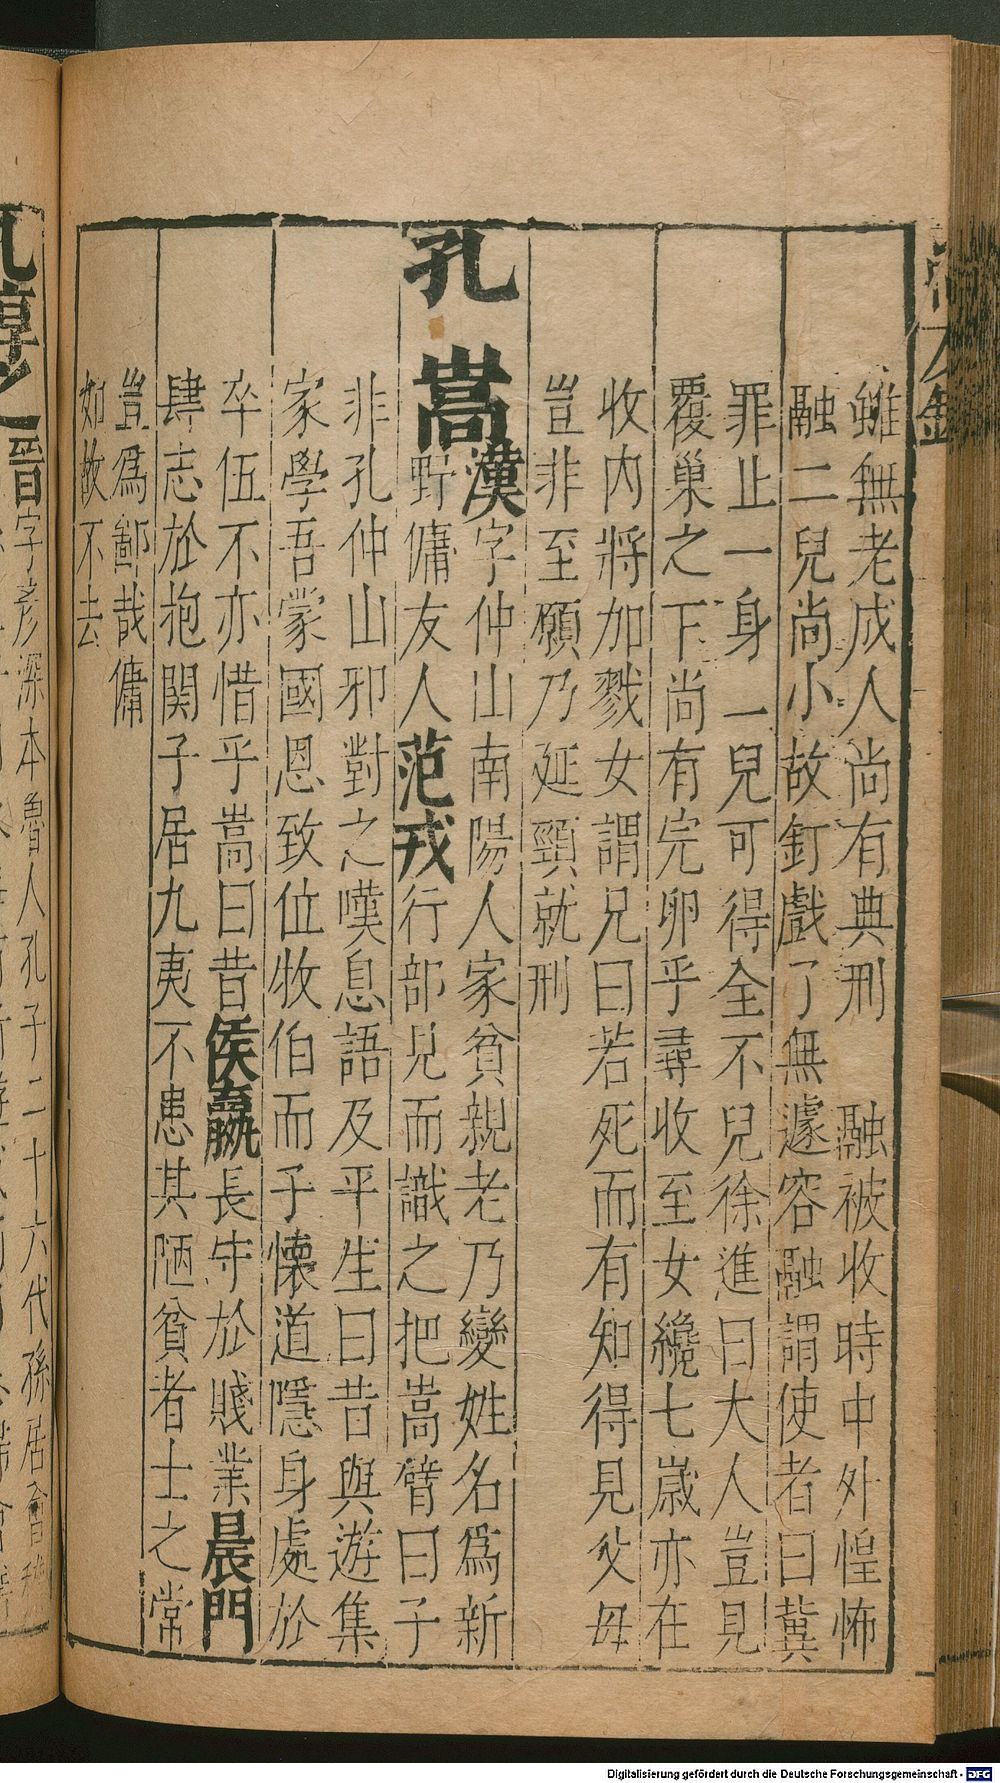 尚友錄
雖無老成人尚有典刑　融被收時中外惶怖
融二兒尚小故釘戲了無遽容融謂使者曰冀
罪止一身一兒可得全不兒徐進曰大人豈見
覆巢之下尚有完卵乎尋收至女纔七歲亦在
收內將加戮女謂兄曰若死而有知得見父母
豈非至願乃延頸就刑
孔嵩漢字仲山南陽人家貧親老乃變姓名爲新
野傭友人范戎行部見而識之把嵩臂曰子
非孔仲山邪對之嘆息語及平生曰昔與遊集
家學吾蒙國恩致位牧伯而子懐道隱身處於
卒伍不亦惜乎嵩曰昔侯嬴長守於賤業晨門
肆志於抱関子居九夷不患其陋貧者士之常
豈爲鄙哉傭
如故不去
孔淳之晉字彥深本魯人孔子二十六代孫居會稽
Digitalisierung gefördert durch die Deutsche Forschungsgemeinschaft - DFG